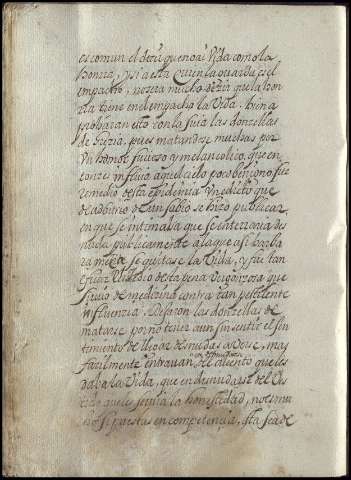 es comun el deçir que no ai Vida como la
honra, y si a esta quien la guarda es el
empacho, no sera mucho deçir que la hon
ra tiene en el empacho la Vida. bien a
probaran esto con la suia las donzellas
de greçia, pues matandose muchas por
Un humor furioso y melancolico, que en
tonçes influio aquel cielo poco benigno fue
remedio desta epidemia Un edicto que
de adbitrio de un sabio se hizo publicar,
en que se intimaba que se enterraria des
nuda publicamente a la que assi barba
ramente se quitase la Vida, y fue tan
eficaz remedio desta pena vergonzosa que
siruio de mediçina contra tan pestilente
influençia. dejaron las donzellas de
matarse por no tener aun sin sentir el sen
timiento de llegar desnudas a verse, mas
façilmente entrauan en desnudarse del aliento que les
daba la Vida, que en desnudarse del Ves
tido que les seguia la honestidad, no es mu
cho si puestas en competençia, esta sea de